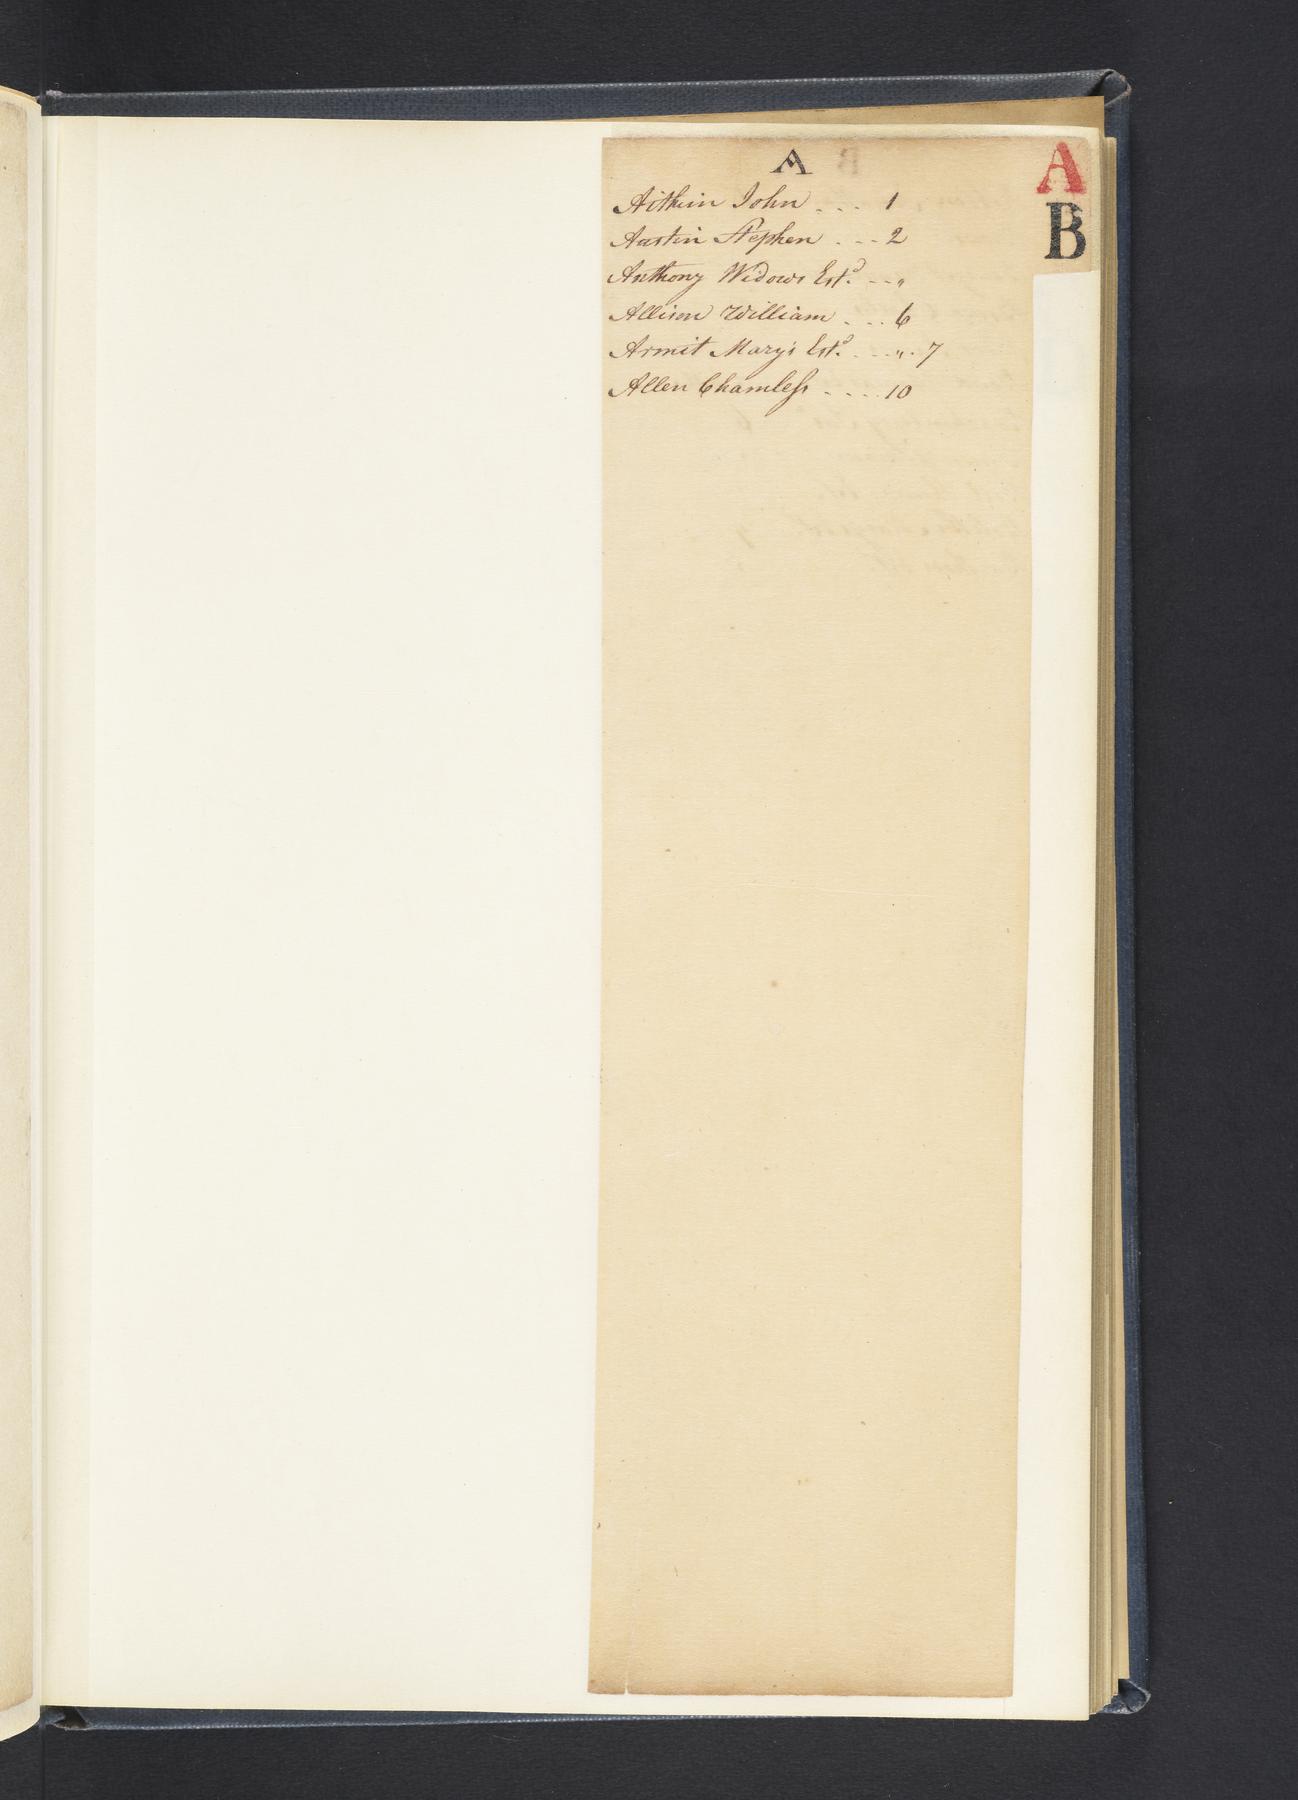 A
A
B
Aitkin John . . . 1
Austin Stephen . . . 2
Anthony Widows Estd. . . "
Allison William . . . 6
Armit Mary's Estd. . . . " . 7
Allen Chamless . . . . 10